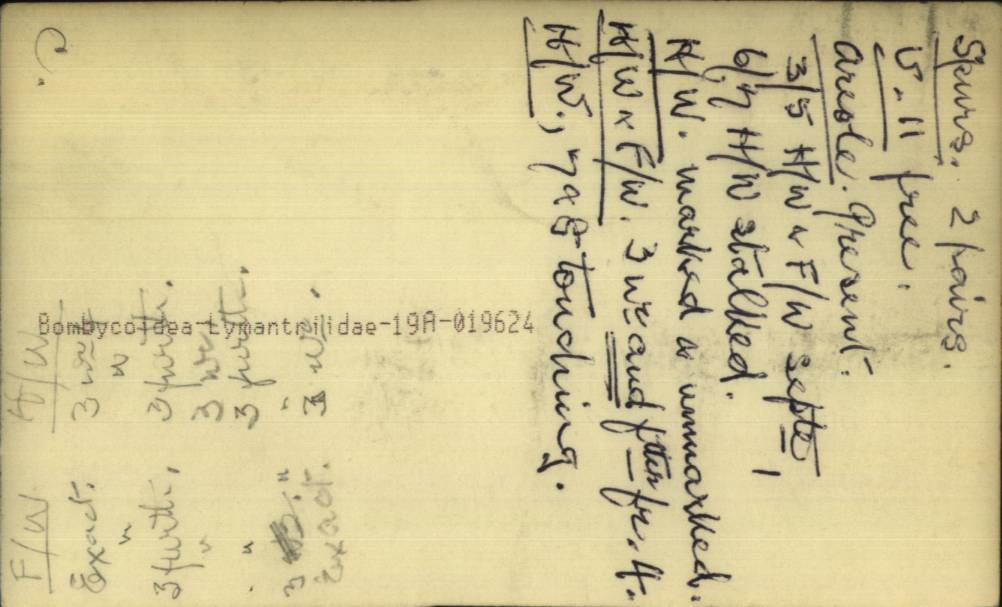 Spurs. 2 pairs.
v-11 free.
Areole. Present.
3/5 H/W & F/W septe,
6/7 H/W stalked.
H/W. marked & unmarked.
H/W & F/W. 3 nr and fthr fr. 4.
H/W., 7 & 8 touching.
Bombycoidea-Lymantriidae-19A-019624
F/W H/W
Exact. 3 nr
" "
3 furth. 3 furth.
" 3 nr
" 3 furth.
3 " "
Exact. 3 nr.